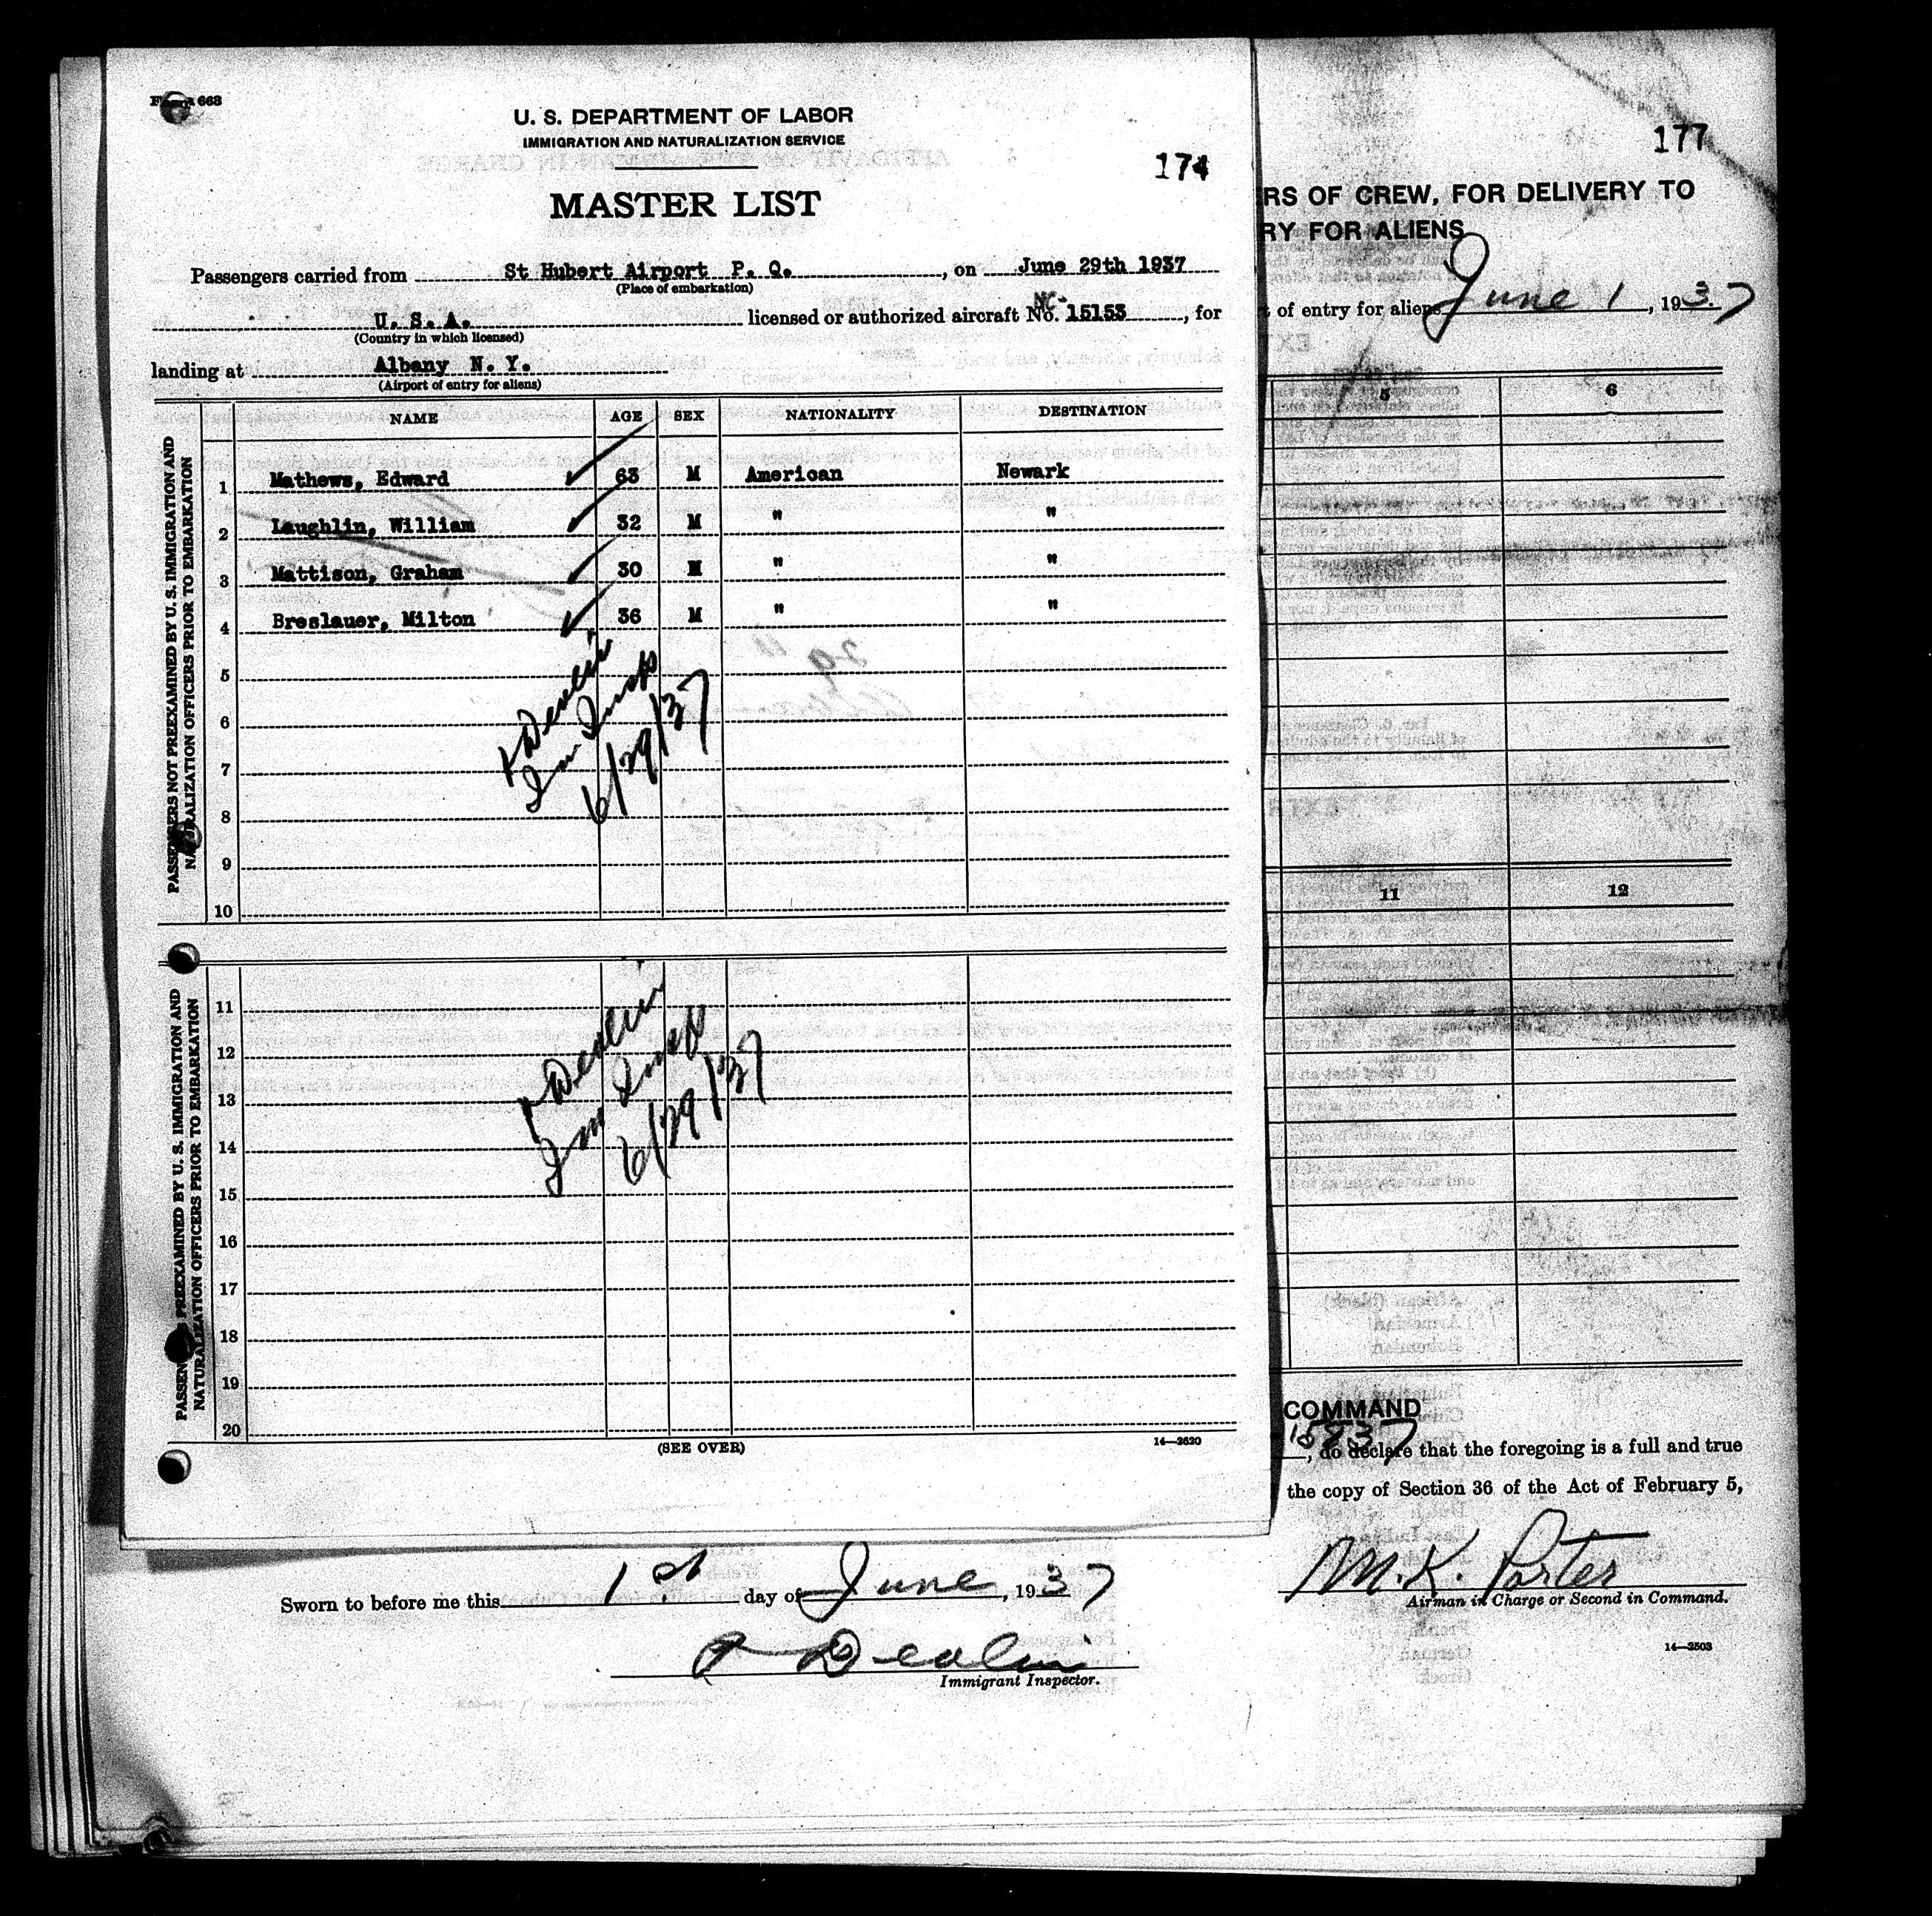 Form 668
U. S. DEPARTMENT OF LABOR
IMMIGRATION AND NATURALIZATION SERVICE
174
MASTER LIST
Passengers carried from St Hubert Airport P. Q., on June 29th 1937
(Place of embarkation)
U. S. A. licensed or authorized aircraft No. NC- 15153, for
(Country in which licensed)
landing at Albany N. Y.
(Airport of entry for aliens)
NAME AGE SEX NATIONALITY DESTINATION
PASSENGERS NOT PREEXAMINED BY U. S. IMMIGRATION AND
NATURALIZATION OFFICERS PRIOR TO EMBARKATION
1 Mathews, Edward 63 M American Newark
2 Laughlin, William 32 M " "
3 Mattison, Graham 30 M " "
4 Breslauer, Milton 36 M " "
5
6
7
8
9
10
Devlin
Imm Insp
6/29/37
PASSENGERS PREEXAMINED BY U. S. IMMIGRATION AND
NATURALIZATION OFFICERS PRIOR TO EMBARKATION
11
12
13
14
15
16
17
18
19
20
Devlin
Imm Insp
6/29/37
(SEE OVER)
14—2620
177
RS OF CREW, FOR DELIVERY TO
RY FOR ALIENS
t of entry for aliens June 1, 1937
5 6
11 12
COMMAND
15837, do declare that the foregoing is a full and true
the copy of Section 36 of the Act of February 5,
M. K. Porter
Airman in Charge or Second in Command.
14—2503
Sworn to before me this 1st day of June, 1937
Devlin
Immigrant Inspector.